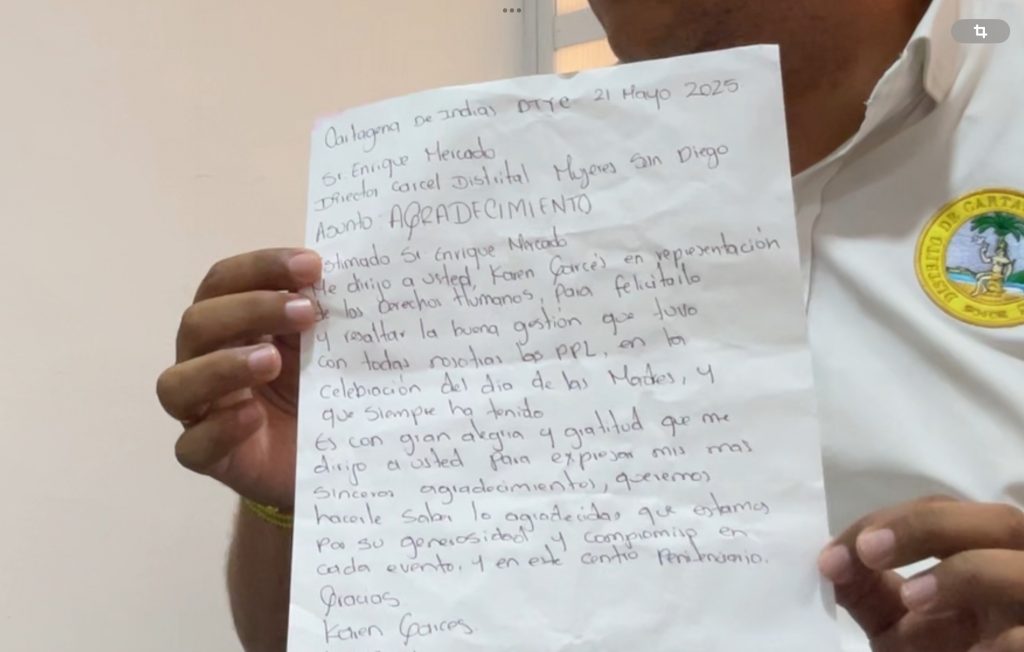 Cartagena De Indias DTYC 21 Mayo 2025
Sr. Enrique Mercado
Director Carcel Distrital Mujeres San Diego
Asunto: AGRADECIMIENTO
Estimado Sr Enrique Mercado
Me dirijo a usted, Karen Garcés en representación
de los Derechos Humanos, para felicitarlo
y resaltar la buena gestión que tuvo
con todas nosotras las PPL, en la
celebración del dia de las Madres, y
que siempre ha tenido
Es con gran alegria y gratitud que me
dirijo a usted para expresar mis mas
sinceros agradecimientos, queremos
hacerle saber lo agradecidas que estamos
por su generosidad y compromiso en
cada evento, y en este centro Penitenciario.
Gracias
Karen Garces.
DISTRITO DE CARTA